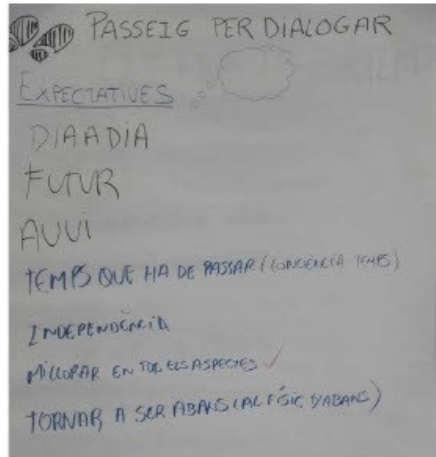 PASSEIG PER DIALOGAR
EXPECTATIVES
DIA A DIA
FUTUR
AVUI
TEMPS QUE HA DE PASSAR (CONCIÈNCIA TEMPS)
INDEPENDÈNCIA
MILLORAR EN TOTS ELS ASPECTES
TORNAR A SER ABANS (AL FÍSIC D'ABANS)